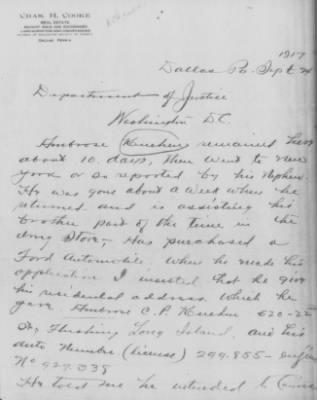 CHAS. H. COOKE
REAL ESTATE
DALLAS, PENNA
1917
Dallas Pa. Sept 24
Department of Justice
Washington D.C.
Ambrose remained here
about 10 days, then went to New
York or so reported by his nephew.
He was gone about a week when he
returned and is assisting his
brother part of the time in the
drug Store, Has purchased a
Ford Automobile. When he made his
application I insisted that he give
his residential address. Which he
gave Ambrose C. P. 620-22
St, Flushing Long Island, and his
auto Number (license) 299.855 - Engine
No 929.338
He told me he intended to